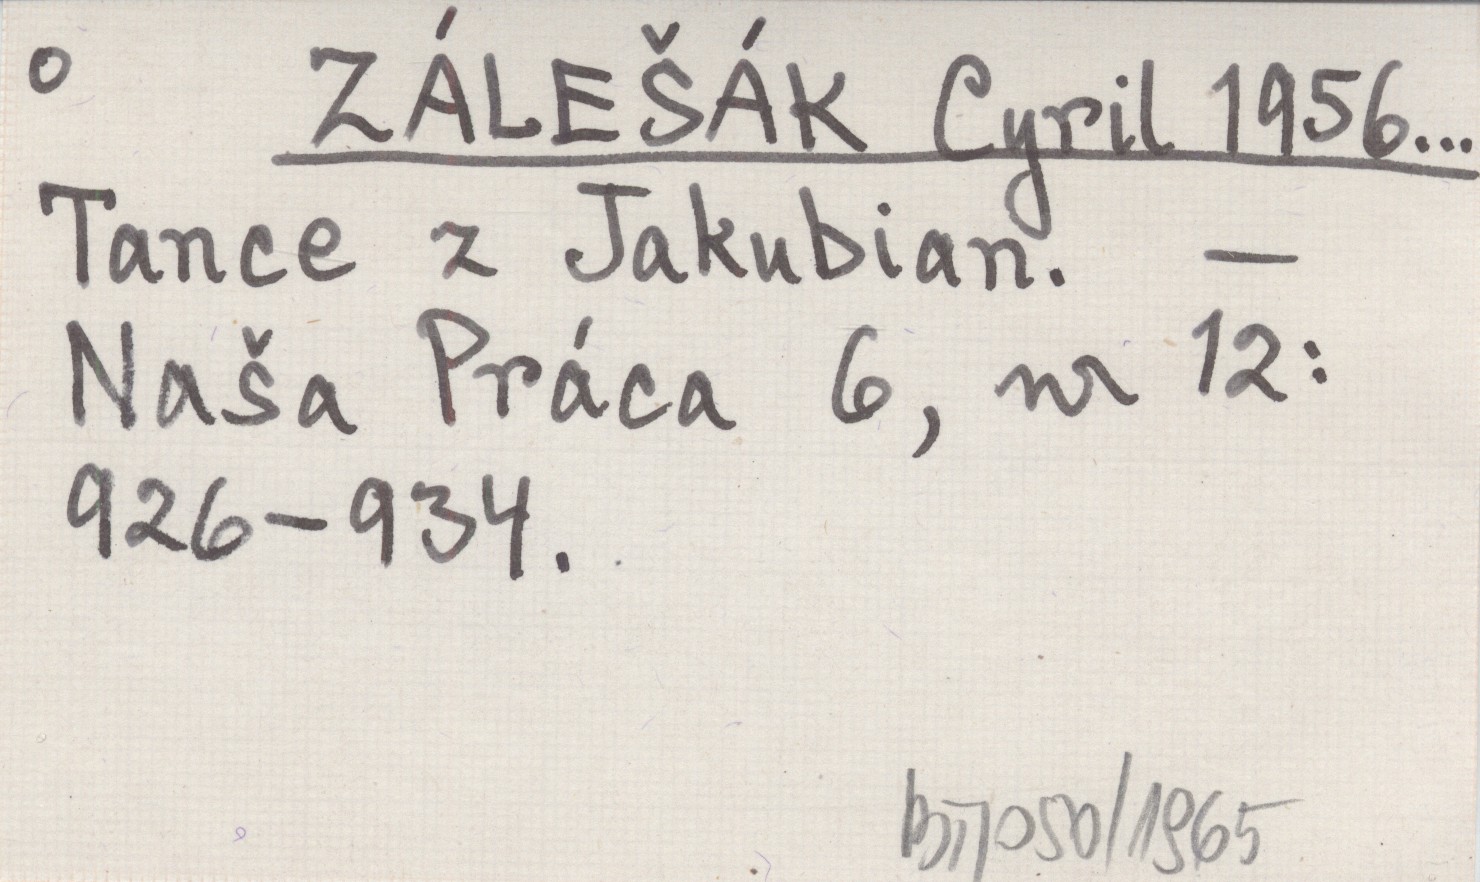 o ZÁLEŠÁK Cyril 1956...
Tance z Jakubian. —
Naša Práca 6, nr 12:
926-934.
/1965